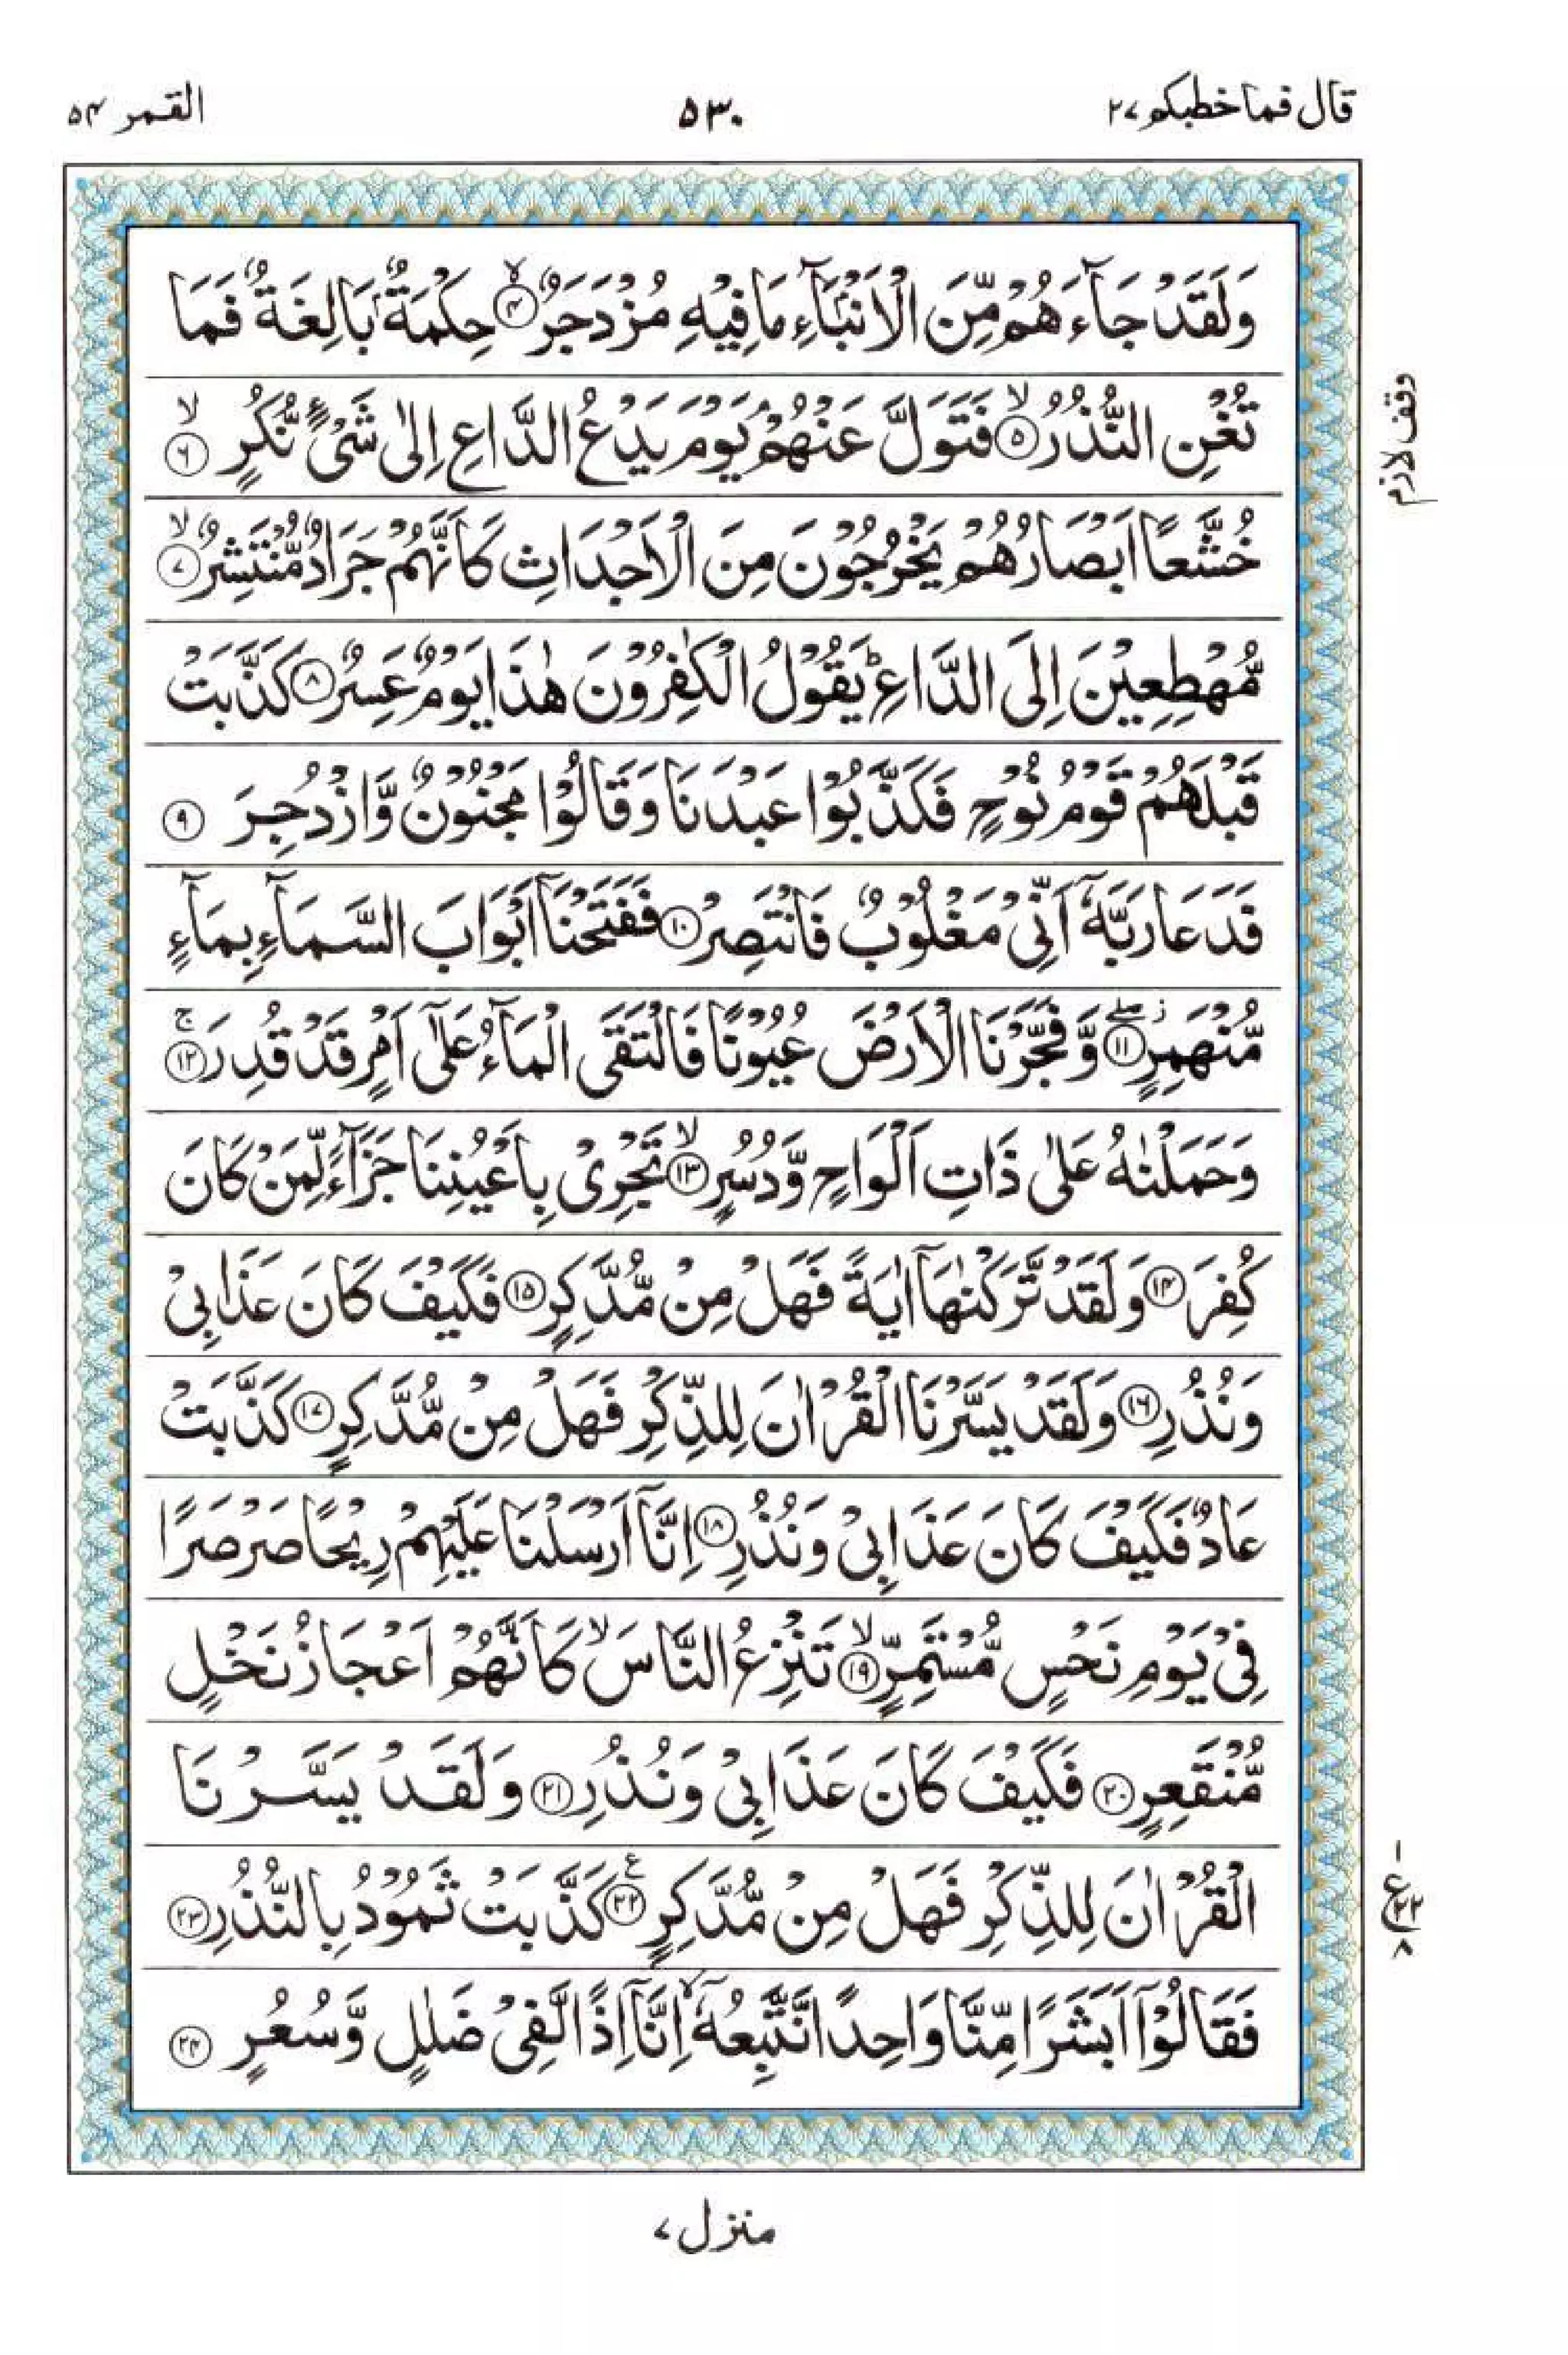 قال فما خطبكم ٢٧
٥٣٠
القمر ٥٤
وَلَقَدْ جَآءَهُمْ مِّنَ الْاَنْۢبَآءِ مَا فِيْهِ مُزْدَجَرٌ ۙ۝٤ حِكْمَةٌۢ بَالِغَةٌ فَمَا
تُغْنِ النُّذُرُ ۙ۝٥ فَتَوَلَّ عَنْهُمْ ۘ يَوْمَ يَدْعُ الدَّاعِ اِلٰى شَيْءٍ نُّكُرٍ ۙ۝٦
خُشَّعًا اَبْصَارُهُمْ يَخْرُجُوْنَ مِنَ الْاَجْدَاثِ كَاَنَّهُمْ جَرَادٌ مُّنْتَشِرٌ ۙ۝٧
مُّهْطِعِيْنَ اِلَى الدَّاعِ ؕ يَقُوْلُ الْكٰفِرُوْنَ هٰذَا يَوْمٌ عَسِرٌ ۝٨ كَذَّبَتْ
قَبْلَهُمْ قَوْمُ نُوْحٍ فَكَذَّبُوْا عَبْدَنَا وَقَالُوْا مَجْنُوْنٌ وَّازْدُجِرَ ۝٩
فَدَعَا رَبَّهٗۤ اَنِّيْ مَغْلُوْبٌ فَانْتَصِرْ ۝١٠ فَفَتَحْنَاۤ اَبْوَابَ السَّمَآءِ بِمَآءٍ
مُّنْهَمِرٍ ۝١١ۖ وَّفَجَّرْنَا الْاَرْضَ عُيُوْنًا فَالْتَقَى الْمَآءُ عَلٰۤى اَمْرٍ قَدْ قُدِرَ ۚ۝١٢
وَحَمَلْنٰهُ عَلٰى ذَاتِ اَلْوَاحٍ وَّدُسُرٍ ۙ۝١٣ تَجْرِيْ بِاَعْيُنِنَا جَزَآءً لِّمَنْ كَانَ
كُفِرَ ۝١٤ وَلَقَدْ تَّرَكْنٰهَاۤ اٰيَةً فَهَلْ مِنْ مُّدَّكِرٍ ۝١٥ فَكَيْفَ كَانَ عَذَابِيْ
وَنُذُرِ ۝١٦ وَلَقَدْ يَسَّرْنَا الْقُرْاٰنَ لِلذِّكْرِ فَهَلْ مِنْ مُّدَّكِرٍ ۝١٧ كَذَّبَتْ
عَادٌ فَكَيْفَ كَانَ عَذَابِيْ وَنُذُرِ ۝١٨ اِنَّاۤ اَرْسَلْنَا عَلَيْهِمْ رِيْحًا صَرْصَرًا
فِيْ يَوْمِ نَحْسٍ مُّسْتَمِرٍّ ۙ۝١٩ تَنْزِعُ النَّاسَ ۙ كَاَنَّهُمْ اَعْجَازُ نَخْلٍ
مُّنْقَعِرٍ ۝٢٠ فَكَيْفَ كَانَ عَذَابِيْ وَنُذُرِ ۝٢١ وَلَقَدْ يَسَّرْنَا
الْقُرْاٰنَ لِلذِّكْرِ فَهَلْ مِنْ مُّدَّكِرٍ ۝٢٢ ع كَذَّبَتْ ثَمُوْدُ بِالنُّذُرِ ۝٢٣
فَقَالُوْۤا اَبَشَرًا مِّنَّا وَاحِدًا نَّتَّبِعُهٗۤ ۙ اِنَّاۤ اِذًا لَّفِيْ ضَلٰلٍ وَّسُعُرٍ ۝٢٤
وقف لازم
١
ع ٢٢
٨
منزل ٧